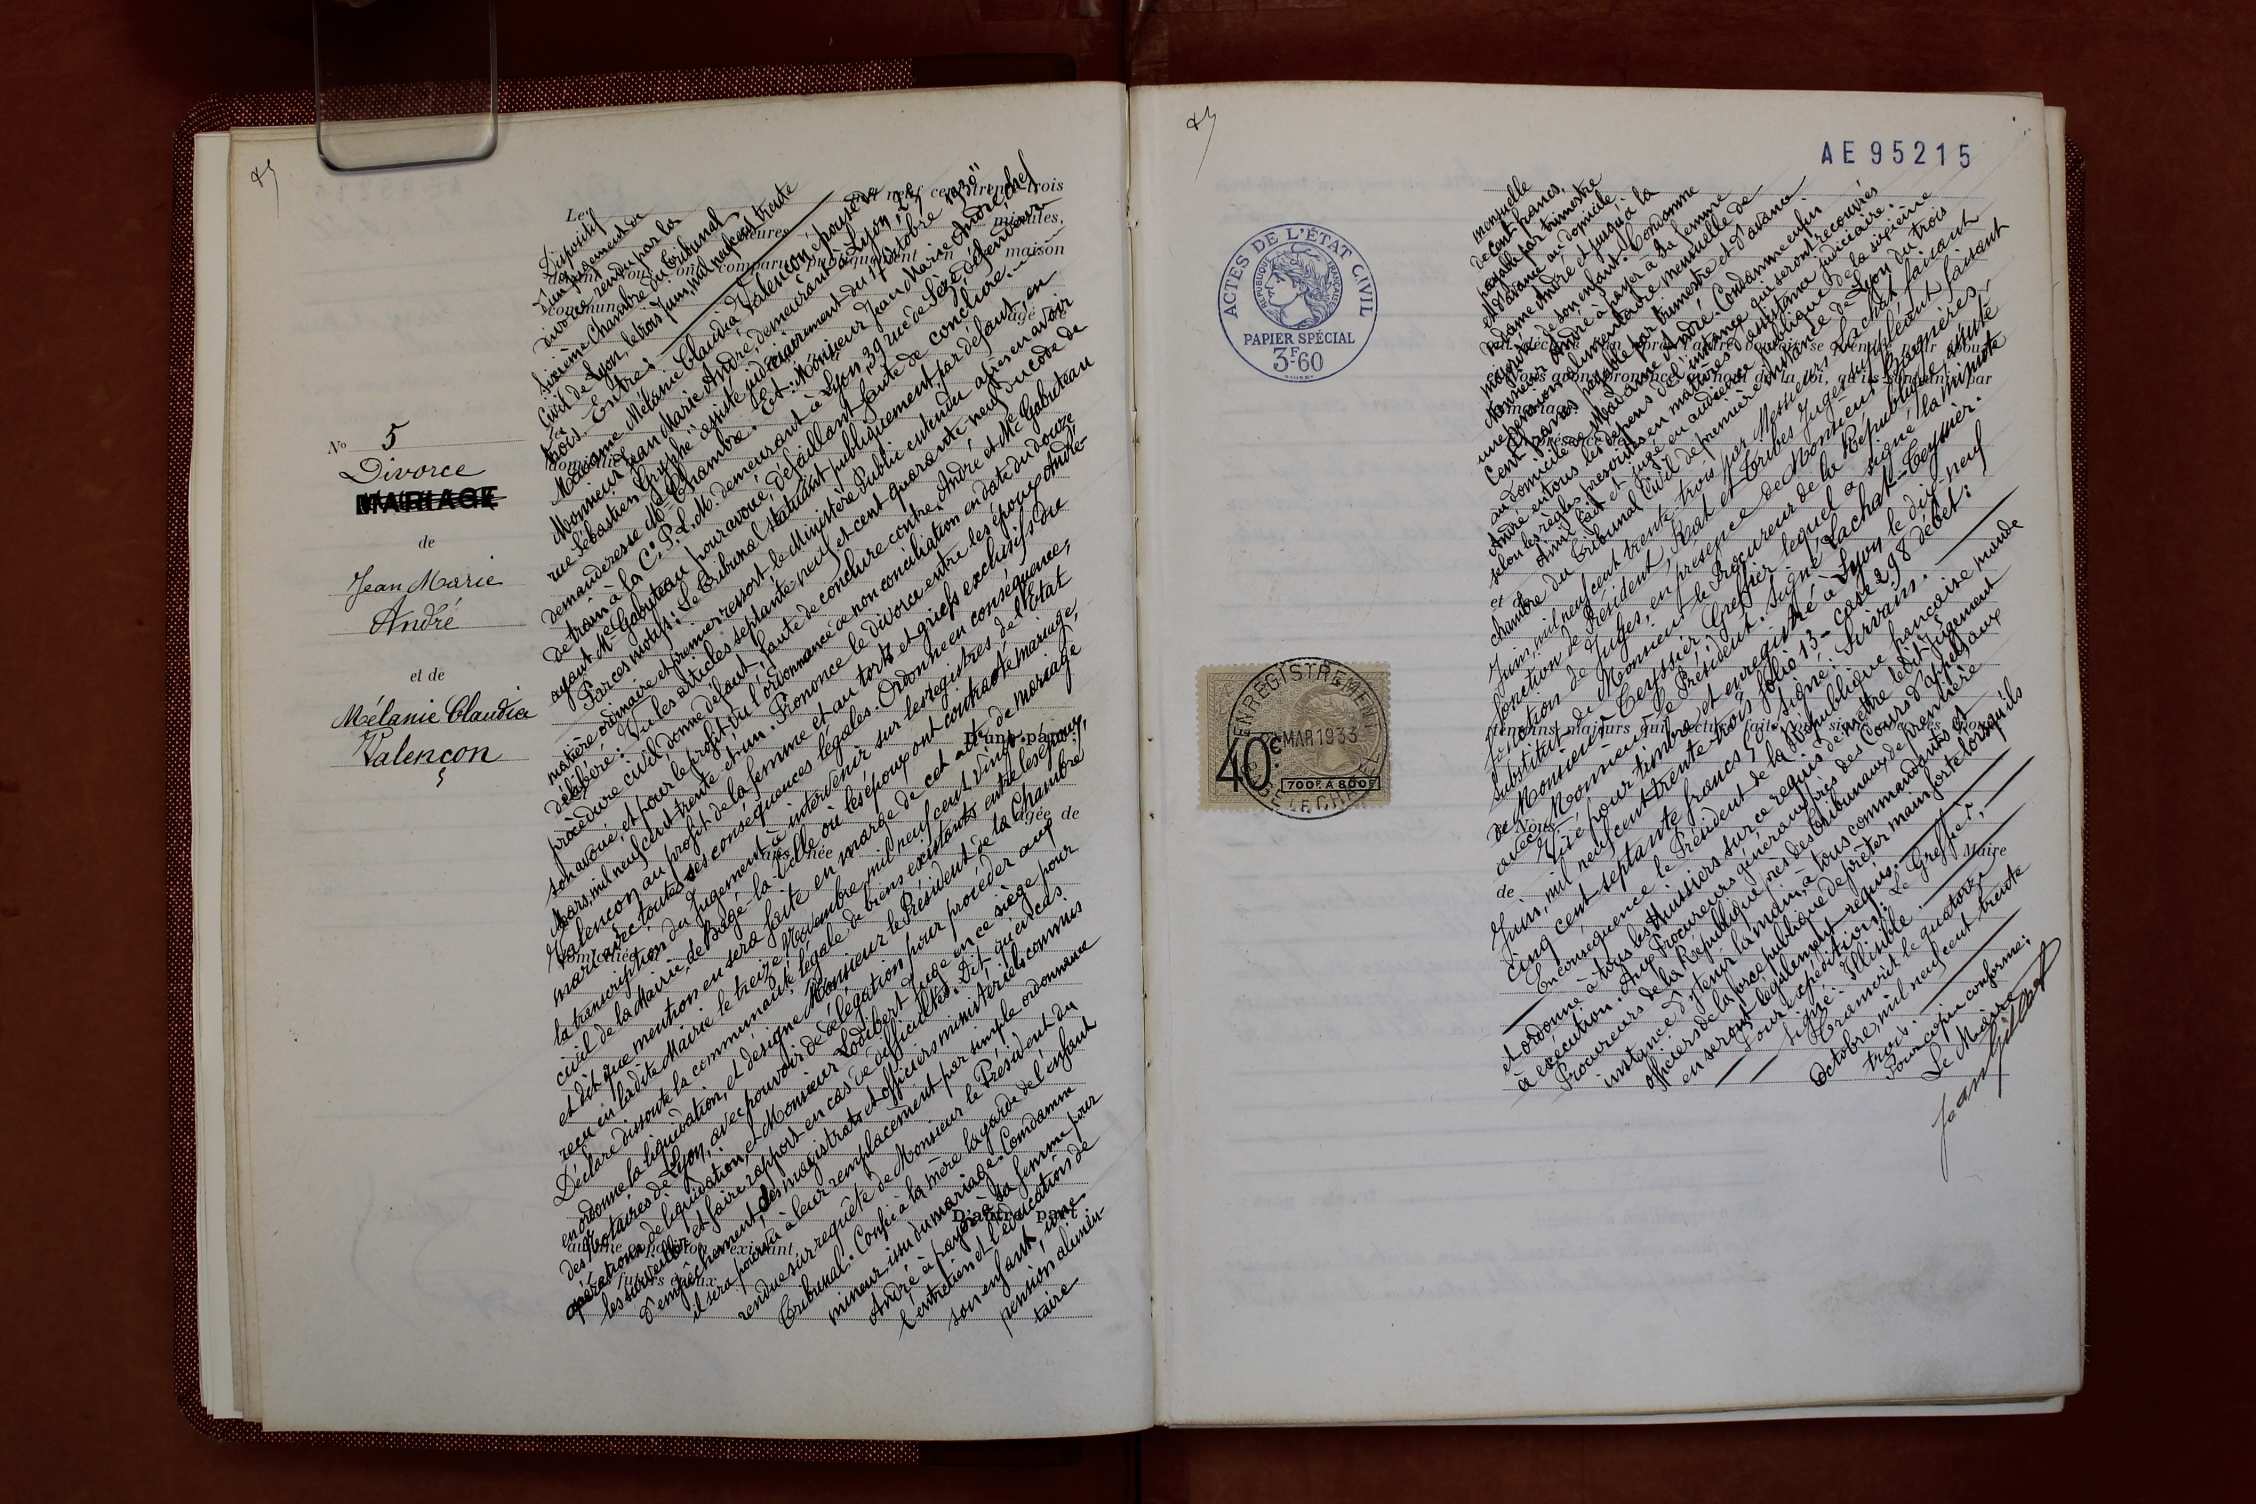 N° 5
Divorce
MARIAGE
de
Jean Marie
André
et de
Mélanie Claudia
Valençon
Dispositif
d'un jugement de
divorce rendu par la
Sixième Chambre du Tribunal
Civil de Lyon, le trois juin, mil neuf cent trente
trois. Entre:
Madame Mélanie Claudia Valençon épouse de
Monsieur Jean Marie André, demeurant à Lyon, 24
rue Sébastien Gryphe "assisté judiciairement du 17 Octobre 1930"
demanderesse Me Chambre. Et: Monsieur Jean Marie André, chef
de train à la Cie P.L.M. demeurant à Lyon, 39 rue de Sèze défendeur
ayant Me Gabuteau pour avoué, défaillant faute de conclure.
Par ces motifs: Le Tribunal statuant publiquement par défaut, en
matière ordinaire et premier ressort le Ministère Public entendu après en avoir
délibéré: Vu les articles septante neuf et cent quarante neuf du code de
procédure civil, donne défaut, faute de conclure contre André et Me Gabuteau
son avoué, et pour le profit, Vu l'ordonnance de non conciliation en date du douze
Mars, mil neuf cent trente et un. Prononce le divorce entre les époux André-
Valençon au profit de la femme et aux torts et griefs exclusifs du
mari avec toutes ses conséquences légales. Ordonne en conséquence,
la transcription du Jugement à intervenir sur les registres de l'Etat
civil de la Mairie de Bagé-la-Ville où les époux ont contracté mariage,
et dit que mention en sera faite en marge de cet acte de mariage
reçu en la dite Mairie le treize Novembre, mil neuf cent vingt.
Déclare dissoute la communauté légale de biens existants entre les époux,
en ordonne la liquidation, et désigne Monsieur le Président de la Chambre
des Notaires de Lyon, avec pouvoir de délégation pour procéder aux
opérations de liquidation, et Monsieur Lodibert Juge en ce siège pour
les surveiller et faire rapport en cas de difficultés. Dit qu'en cas
d'empêchement, des magistrats et officiers ministériels commis
il sera pourvu à leur remplacement par simple ordonnance
rendue sur requête de Monsieur le Président du
Tribunal. Confie à la mère la garde de l'enfant
mineur issu du mariage. Condamne
André à payer à sa femme pour
l'entretien et l'éducation de
son enfant, une
pension alimen-
taire
D'une part
âgée de
D'autre part
AE95215
ACTES DE L'ÉTAT CIVIL
RÉPUBLIQUE FRANÇAISE
PAPIER SPÉCIAL
3F.60
ENREGISTREMENT
MAR 1933
40c
700F. A 800F
mensuelle
de Cent francs,
payable par trimestre
et d'avance au domicile de
Madame André et jusqu'à la
majorité de son enfant. Condamne
Monsieur André à payer à sa femme
une pension alimentaire mensuelle de
Cent francs payable par trimestre et d'avance
au domicile de Madame André. Condamne enfin
André en tous les dépens de l'instance qui seront recouvrés
selon les règles prescrites en matière d'assistance judiciaire.
Ainsi fait et jugé en audience publique de la sixième
chambre du Tribunal Civil de première instance de Lyon du trois
Juin, mil neuf cent trente-trois par Messieurs Lachat faisant
fonction de Président, Réat et Foribes Juges suppléant faisant
fonction de Juges, en présence de Monsieur Bragnières,
Substitut de Monsieur le Procureur de la République, assisté
de Monsieur Teyssier Greffier lequel a signé la minute
avec Monsieur le Président. Signé: Lachat-Teyssier.
Visé pour timbre et enregistré à Lyon le dix-neuf
Juin, mil neuf cent trente trois folio 13 - case 298 débet:
Cinq cent septante francs 50. Signé: Servain.
En conséquence le Président de la République française mande
et ordonne à tous les Huissiers sur ce requis de mettre ledit Jugement
à exécution. Aux Procureurs généraux près des Cours d'appel, aux
Procureurs de la République près des Tribunaux de première
instance d'y tenir la main, à tous commandants et
officiers de la force publique de prêter main forte lorsqu'ils
en seront légalement requis.
Pour expédition: Le Greffier,
Signé: Illisible.
Transcrit le quatorze
Octobre, mil neuf cent trente
trois.
Pour copie conforme:
Le Maire
Jean Gilbet
Maire